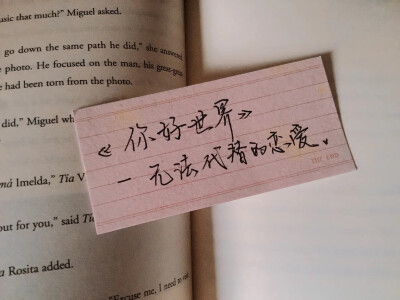 usic that much?" Miguel asked.
go down the same path he did," she answered
e photo. He focused on the man, his great-great-
e had been torn from the photo.
did," Miguel wh
má Imelda," Tía V
out for you," said Tí
a Rosita added.
"Excuse me, I need to
《你好世界》
—无法代替的恋爱。
THE END